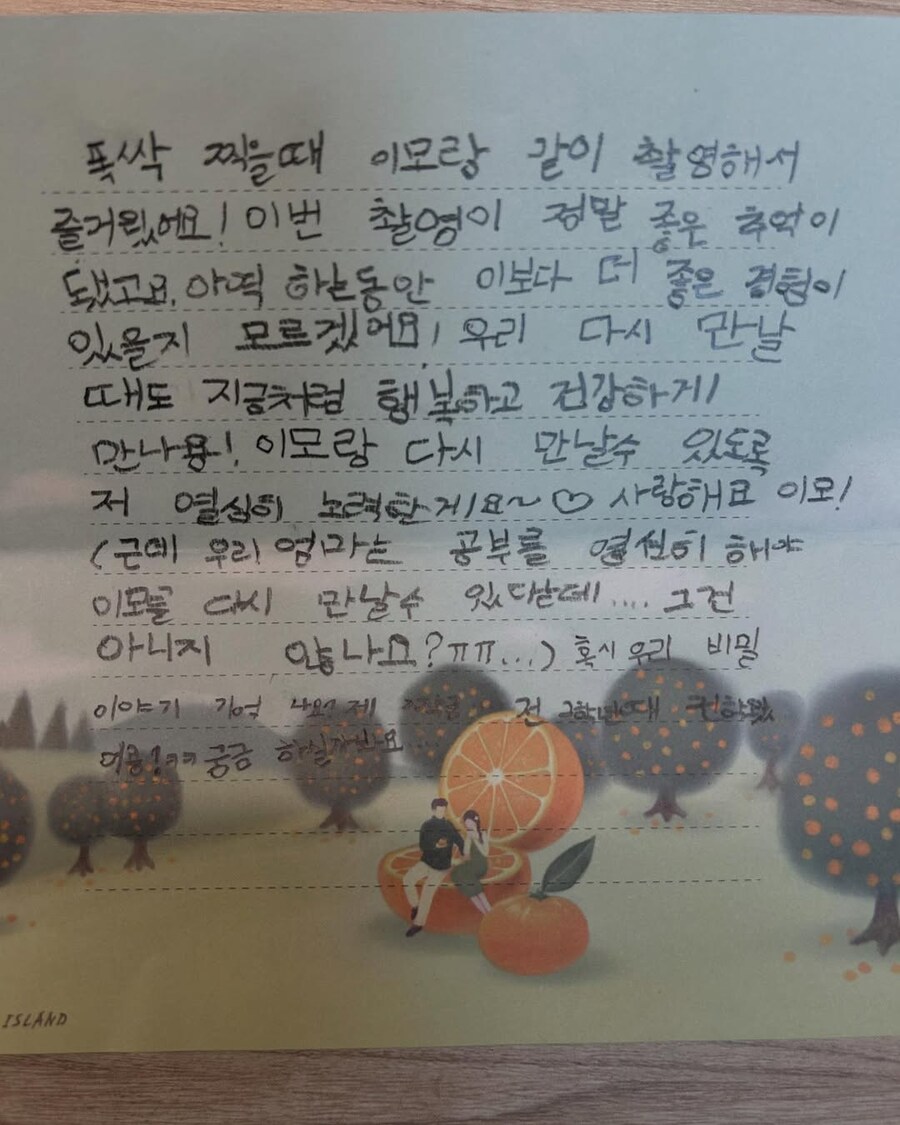 폭싹 찍을때 이모랑 같이 촬영해서
즐거웠어요! 이번 촬영이 정말 좋은 추억이
됐고요. 아역 하는동안 이보다 더 좋은 경험이
있을지 모르겠어요! 우리 다시 만날
때도 지금처럼 행복하고 건강하게!
만나용! 이모랑 다시 만날수 있도록
저 열심히 노력할게요~♡ 사랑해요 이모!
(근데 우리 엄마는 공부를 열심히 해야
이모를 다시 만날수 있다는데.... 그건
아니지 않나요?ㅠㅠ...) 혹시 우리 비밀
이야기 기억 나요? 제 전
ㅋㅋ 궁금 하실까봐요....
ISLAND